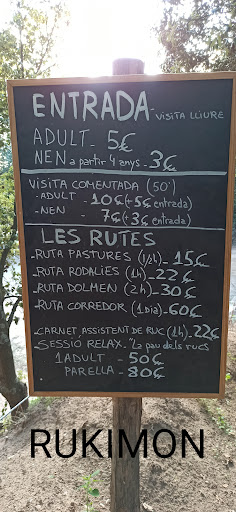 ENTRADA - VISITA LLIURE
ADULT - 5€
NEN a partir 4 anys - 3€
VISITA COMENTADA (50')
- ADULT - 10€ (+5€ entrada)
- NEN - 7€ (+3€ entrada)
LES RUTES
- RUTA PASTURES (1/2h) - 15€
- RUTA RODALIES (1h) - 22€
- RUTA DOLMEN (2h) - 30€
- RUTA CORREDOR (1 DIA) - 60€
- CARNET ASSISTENT DE RUC (1h) - 22€
- SESSIÓ RELAX. "La pau dels rucs
1 ADULT - 50€
PARELLA - 80€
RUKIMON